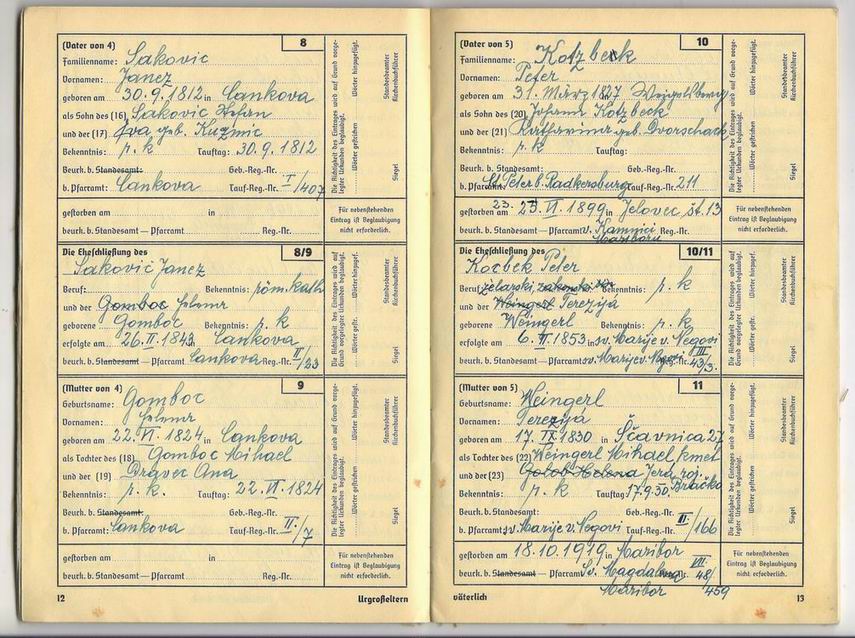 (Vater von 4) 8
Familienname: Sakovic
Vornamen: Janez
geboren am 30.9.1812 in Cankova
als Sohn des (16) Sakovic Stefan
und der (17) Eva geb. Kuzmic
Bekenntnis: r. k Tauftag: 30.9.1812
Beurk. b. Standesamt: Geb.-Reg.-Nr.
b. Pfarramt: Cankova Tauf-Reg.-Nr. I/407
gestorben am in
beurk. b. Standesamt – Pfarramt Reg.-Nr.
Die Richtigkeit des Eintrages wird auf Grund vorge-
legter Urkunden beglaubigt.
Wörter gestrichen Wörter hinzugefügt.
Siegel
Standesbeamter
Kirchenbuchführer
Für nebenstehenden
Eintrag ist Beglaubigung
nicht erforderlich.
Die Eheschließung des 8/9
Sakovič Janez
Beruf: Bekenntnis: röm. kath
und der Gomboc
geborene Gomboc Bekenntnis: r. k
erfolgte am 26.II.1843 Cankova
beurk. b. Standesamt – Pfarramt Cankova Reg.-Nr. II/23
Die Richtigkeit des Eintrages wird auf
Grund vorgelegter Urkunden beglaubigt.
Wörter gestr. Wörter hinzugef.
Siegel
Standesbeamter
Kirchenbuchführer
(Mutter von 4) 9
Geburtsname: Gomboc
Vornamen:
geboren am 22.VI.1824 in Cankova
als Tochter des (18) Gomboc Mihael
und der (19) Dravec Ana
Bekenntnis: r. k. Tauftag: 22.VI.1824
Beurk. b. Standesamt: Geb.-Reg.-Nr.
b. Pfarramt: Cankova Tauf-Reg.-Nr. II/7
gestorben am in
beurk. b. Standesamt – Pfarramt Reg.-Nr.
Die Richtigkeit des Eintrages wird auf Grund vorge-
legter Urkunden beglaubigt.
Wörter gestrichen Wörter hinzugefügt.
Siegel
Standesbeamter
Kirchenbuchführer
Für nebenstehenden
Eintrag ist Beglaubigung
nicht erforderlich.
12 Urgroßeltern
(Vater von 5) 10
Familienname: Kotzbeck
Vornamen: Peter
geboren am 31. März 1827 Weigelsberg
als Sohn des (20) Johann Kotzbeck
und der (21) Katharina geb. Dvorschack
Bekenntnis: r. k Tauftag:
Beurk. b. Standesamt: Geb.-Reg.-Nr.
b. Pfarramt: St Peter b. Radkersburg Tauf-Reg.-Nr. 211
gestorben am 23. VI. 1899 in Jelovec št. 13
beurk. b. Standesamt – Pfarramt v. Kamnici Reg.-Nr.
Mariboru
Die Richtigkeit des Eintrages wird auf Grund vorge-
legter Urkunden beglaubigt.
Wörter gestrichen Wörter hinzugefügt.
Siegel
Standesbeamter
Kirchenbuchführer
Für nebenstehenden
Eintrag ist Beglaubigung
nicht erforderlich.
Die Eheschließung des 10/11
Kocbek Peter
Beruf: želarski Bekenntnis: r. k
und der Weingerl Terezija
geborene Weingerl Bekenntnis: r. k
erfolgte am 6.II.1853 in sv. Marije v. Negovi
beurk. b. Standesamt – Pfarramt sv. Marije v. Negovi Reg.-Nr. III 43/3.
Die Richtigkeit des Eintrages wird auf
Grund vorgelegter Urkunden beglaubigt.
Wörter gestr. Wörter hinzugef.
Siegel
Standesbeamter
Kirchenbuchführer
(Mutter von 5) 11
Geburtsname: Weingerl
Vornamen: Terezija
geboren am 17. IX 1830 in Ščavnica 27
als Tochter des (22) Weingerl Mihael kmet
und der (23) Golob Helena Jera roj.
Bračko
Bekenntnis: r. k Tauftag: 17.9.30.
Beurk. b. Standesamt: Geb.-Reg.-Nr.
b. Pfarramt: sv. Marije v. Negovi Tauf-Reg.-Nr. II/166
gestorben am 18.10.1919 in Maribor
beurk. b. Standesamt – Pfarramt Sv. Magdalena Reg.-Nr. VII 48/459
Maribor
Die Richtigkeit des Eintrages wird auf Grund vorge-
legter Urkunden beglaubigt.
Wörter gestrichen Wörter hinzugefügt.
Siegel
Standesbeamter
Kirchenbuchführer
Für nebenstehenden
Eintrag ist Beglaubigung
nicht erforderlich.
väterlich 13